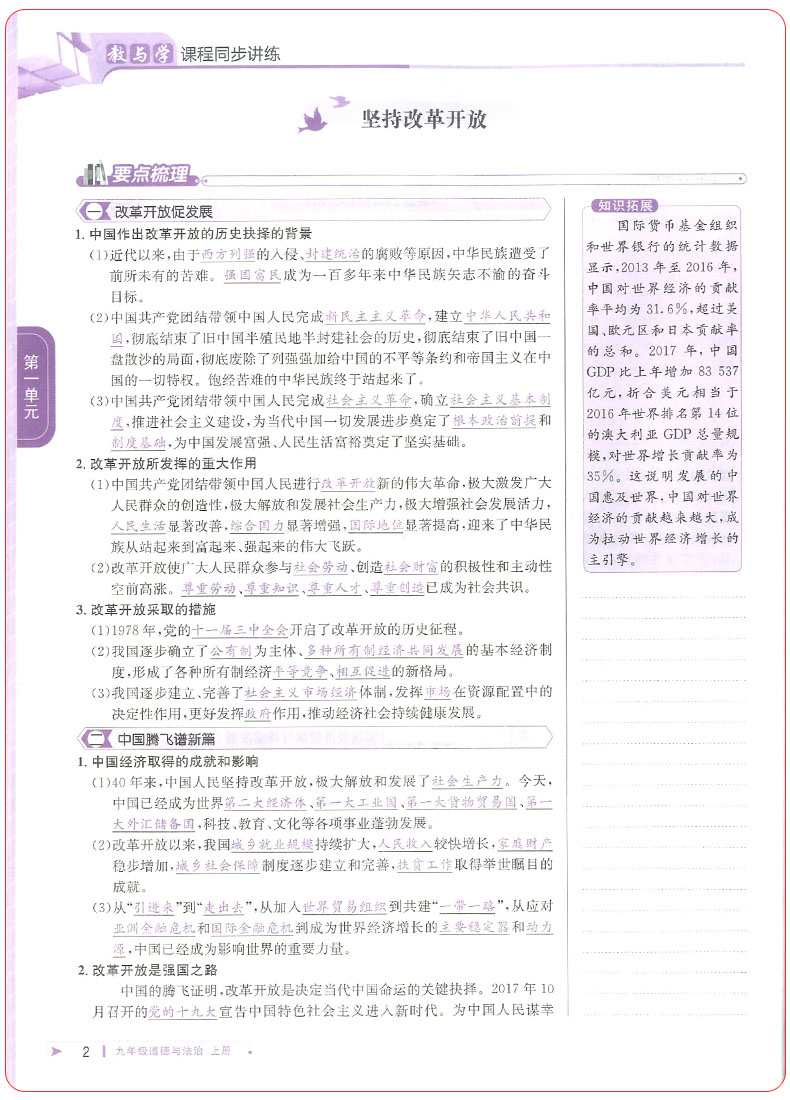 教与学 课程同步讲练
坚持改革开放
要点梳理
一 改革开放促发展
1. 中国作出改革开放的历史抉择的背景
(1)近代以来,由于西方列强的入侵、封建统治的腐败等原因,中华民族遭受了
前所未有的苦难。强国富民成为一百多年来中华民族矢志不渝的奋斗
目标。
(2)中国共产党团结带领中国人民完成新民主主义革命,建立中华人民共和
国,彻底结束了旧中国半殖民地半封建社会的历史,彻底结束了旧中国一
盘散沙的局面,彻底废除了列强强加给中国的不平等条约和帝国主义在中
国的一切特权。饱经苦难的中华民族终于站起来了。
(3)中国共产党团结带领中国人民完成社会主义革命,确立社会主义基本制
度,推进社会主义建设,为当代中国一切发展进步奠定了根本政治前提和
制度基础,为中国发展富强、人民生活富裕奠定了坚实基础。
2. 改革开放所发挥的重大作用
(1)中国共产党团结带领中国人民进行改革开放新的伟大革命,极大激发广大
人民群众的创造性,极大解放和发展社会生产力,极大增强社会发展活力,
人民生活显著改善,综合国力显著增强,国际地位显著提高,迎来了中华民
族从站起来到富起来、强起来的伟大飞跃。
(2)改革开放使广大人民群众参与社会劳动、创造社会财富的积极性和主动性
空前高涨。尊重劳动、尊重知识、尊重人才、尊重创造已成为社会共识。
3. 改革开放采取的措施
(1)1978年,党的十一届三中全会开启了改革开放的历史征程。
(2)我国逐步确立了公有制为主体、多种所有制经济共同发展的基本经济制
度,形成了各种所有制经济平等竞争、相互促进的新格局。
(3)我国逐步建立、完善了社会主义市场经济体制,发挥市场在资源配置中的
决定性作用,更好发挥政府作用,推动经济社会持续健康发展。
二 中国腾飞谱新篇
1. 中国经济取得的成就和影响
(1)40年来,中国人民坚持改革开放,极大解放和发展了社会生产力。今天,
中国已经成为世界第二大经济体、第一大工业国、第一大货物贸易国、第一
大外汇储备国,科技、教育、文化等各项事业蓬勃发展。
(2)改革开放以来,我国城乡就业规模持续扩大,人民收入较快增长,家庭财产
稳步增加,城乡社会保障制度逐步建立和完善,扶贫工作取得举世瞩目的
成就。
(3)从“引进来”到“走出去”,从加入世界贸易组织到共建“一带一路”,从应对
亚洲金融危机和国际金融危机到成为世界经济增长的主要稳定器和动力
源,中国已经成为影响世界的重要力量。
2. 改革开放是强国之路
中国的腾飞证明,改革开放是决定当代中国命运的关键抉择。2017年10
月召开的党的十九大宣告中国特色社会主义进入新时代。为中国人民谋幸
知识拓展
国际货币基金组织
和世界银行的统计数据
显示,2013年至2016年,
中国对世界经济的贡献
率平均为31.6%,超过美
国、欧元区和日本贡献率
的总和。2017年,中国
GDP比上年增加83 537
亿元,折合美元相当于
2016年世界排名第14位
的澳大利亚GDP总量规
模,对世界增长贡献率为
35%。这说明发展的中
国惠及世界,中国对世界
经济的贡献越来越大,成
为拉动世界经济增长的
主引擎。
第一单元
2 九年级道德与法治 上册